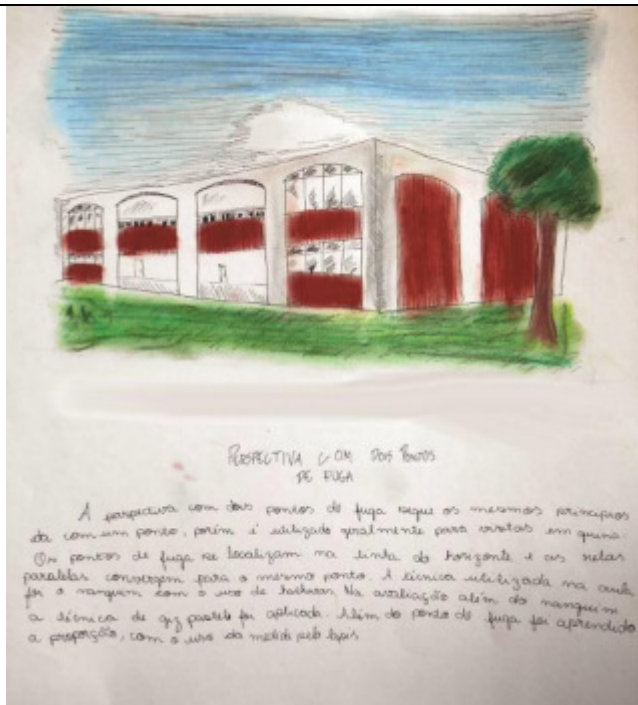 PERSPECTIVA COM DOIS PONTOS
DE FUGA
A perspectiva com dois pontos de fuga segue os mesmos princípios
da com um ponto, porém é utilizado geralmente para vistas em quina.
Os pontos de fuga se localizam na linha do horizonte e as retas
paralelas convergem para o mesmo ponto. A técnica utilizada na aula
foi o nanquim com o uso de hachuras. Na avaliação além do nanquim
a técnica de giz pastel foi aplicada. Além do ponto de fuga foi aprendido
a proporção, com o uso da medida pelo lápis